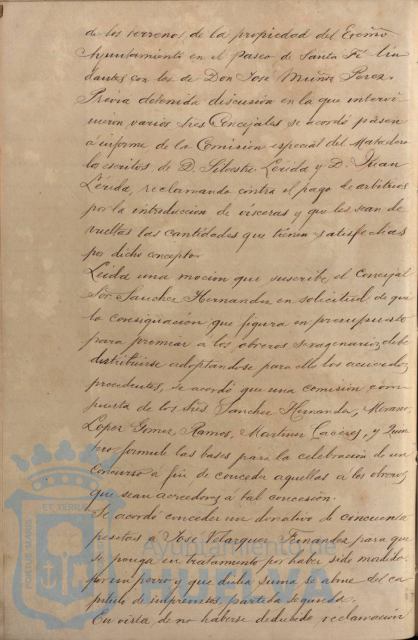 de los terrenos de la propiedad del Excmo
Ayuntamiento en el Paseo de Santa Fé lin
dantes con los de Don José Muñoz Perez.
Previa detenida discusión en la que intervi
nieron varios Sres Concejales se acordó pasen
a informe de la Comisión especial del Matadero
los escritos de D. Silvestre Lérida y D. Juan
Lérida, reclamando contra el pago de arbitrios
por la introducción de vísceras y que les sean de
vueltas las cantidades que tienen satisfechas
por dicho concepto.
Leida una moción que suscribe el Concejal
Sor. Sanchez Hernandez en solicitud de que
la consignación que figura en presupuesto
para premiar a los obreros sexagenarios debe
distribuirse adoptandose para ello los acuerdos
procedentes, se acordó que una comisión com
puesta de los Sres Sanchez Hernandez, Moreno,
Lopez Gomez, Ramos, Martinez Caceres, y
formule las bases para la celebración de un
Concurso a fin de conceder aquellas a los obreros
que sean acreedores a tal concesión.
Se acordó conceder un donativo de cincuenta
pesetas a José Velazquez Fernandez para que
se ponga en tratamiento por haber sido mordido
por un perro y que dicha suma se abone del ca
pitulo de imprevistos, partida segunda.
En vista de no haberse deducido reclamación
Ayuntamiento de
PORTUS MARIS
ET TERRAE